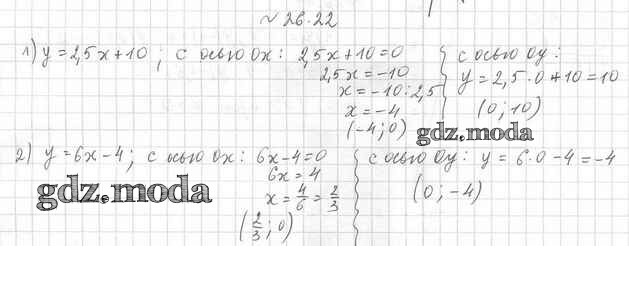 № 26.22
1) y = 2,5x + 10 ; с осью Ox: 2,5x + 10 = 0
2,5x = -10
x = -10 : 2,5
x = -4
(-4; 0)
с осью Oy:
y = 2,5 · 0 + 10 = 10
(0; 10)
gdz.moda
2) y = 6x - 4; с осью Ox: 6x - 4 = 0
6x = 4
x = 4/6 = 2/3
(2/3; 0)
с осью Oy: y = 6 · 0 - 4 = -4
(0; -4)
gdz.moda